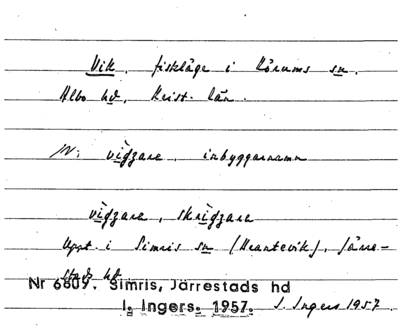 Vik, fiskläge i Rörums sn.
Albo hd, Krist. län.
N: vìgzare, inbyggarnamn
vìgzare, skrìgzare
Uppt i Simris sn (Brantevik), Järre-
stads hd
Nr 6809. Simris, Järrestads hd
I. Ingers. 1957. I. Ingers 1957.